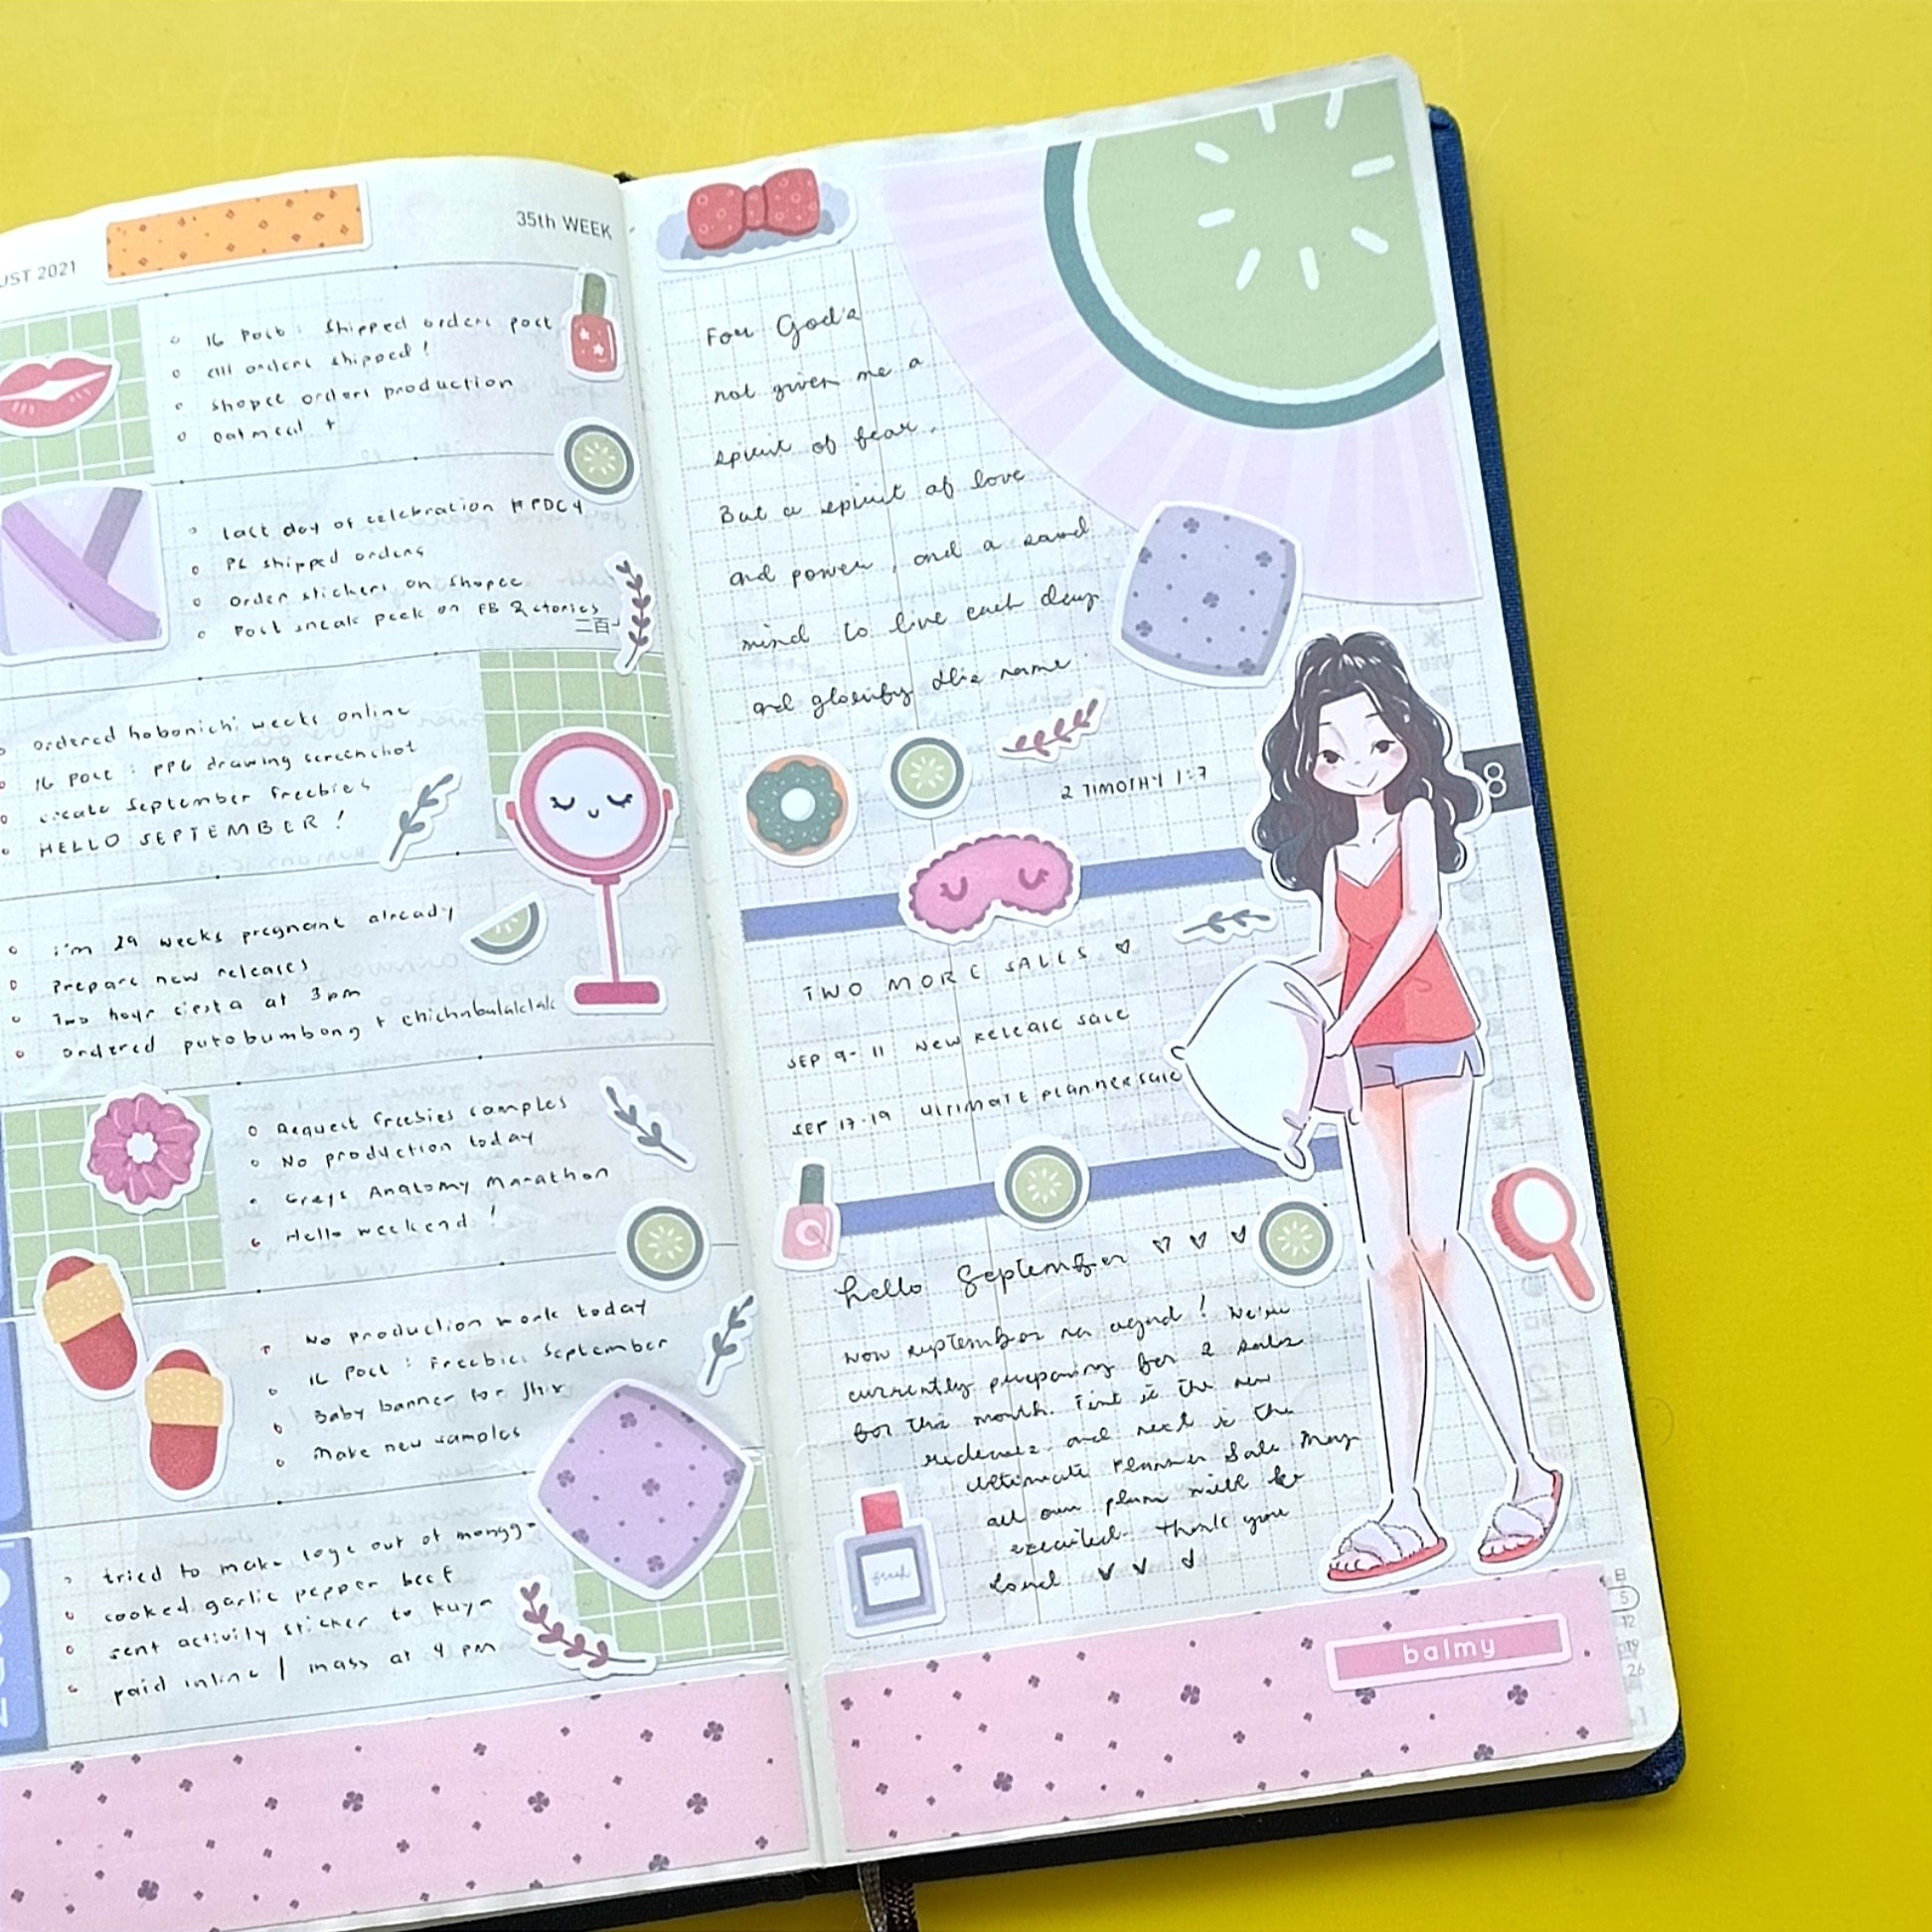 UST 2021
35th WEEK
IG Post : Shipped orders post
All orders shipped!
Shopee orders production
oatmeal +
last day of celebration HPDC4
PL shipped orders
order stickers on Shopee
Post sneak peek on FB & stories
二百
ordered hobonichi weeks online
IG Post : PPG drawing screenshot
create September freebies
HELLO SEPTEMBER!
i'm 29 weeks pregnant already
Prepare new releases
Two hour siesta at 3pm
ordered putobumbong +
Request freebies samples
No production today
Greys Anatomy Marathon
Hello weekend!
No production work today
IG Post : Freebies September
Baby banner for
Make new samples
tried to make toge out of monggo
cooked garlic pepper beef
sent activity sticker to kuya
paid inline / mass at 4 pm
For God's
not given me a
spirit of fear,
But a spirit of love
and power, and a sound
mind to live each day
and glorify His name
2 TIMOTHY 1:7
8
TWO MORE SALES
SEP 9-11 New Release sale
SEP 17-19 Ultimate planner sale
hello September
Wow september na agad! We're
currently preparing for 2 sales
for this month. First is the new
releases and next is the
Ultimate Planner Sale. May
all our plans will be
executed. Thank you
Lord
balmy
日
5
12
19
26